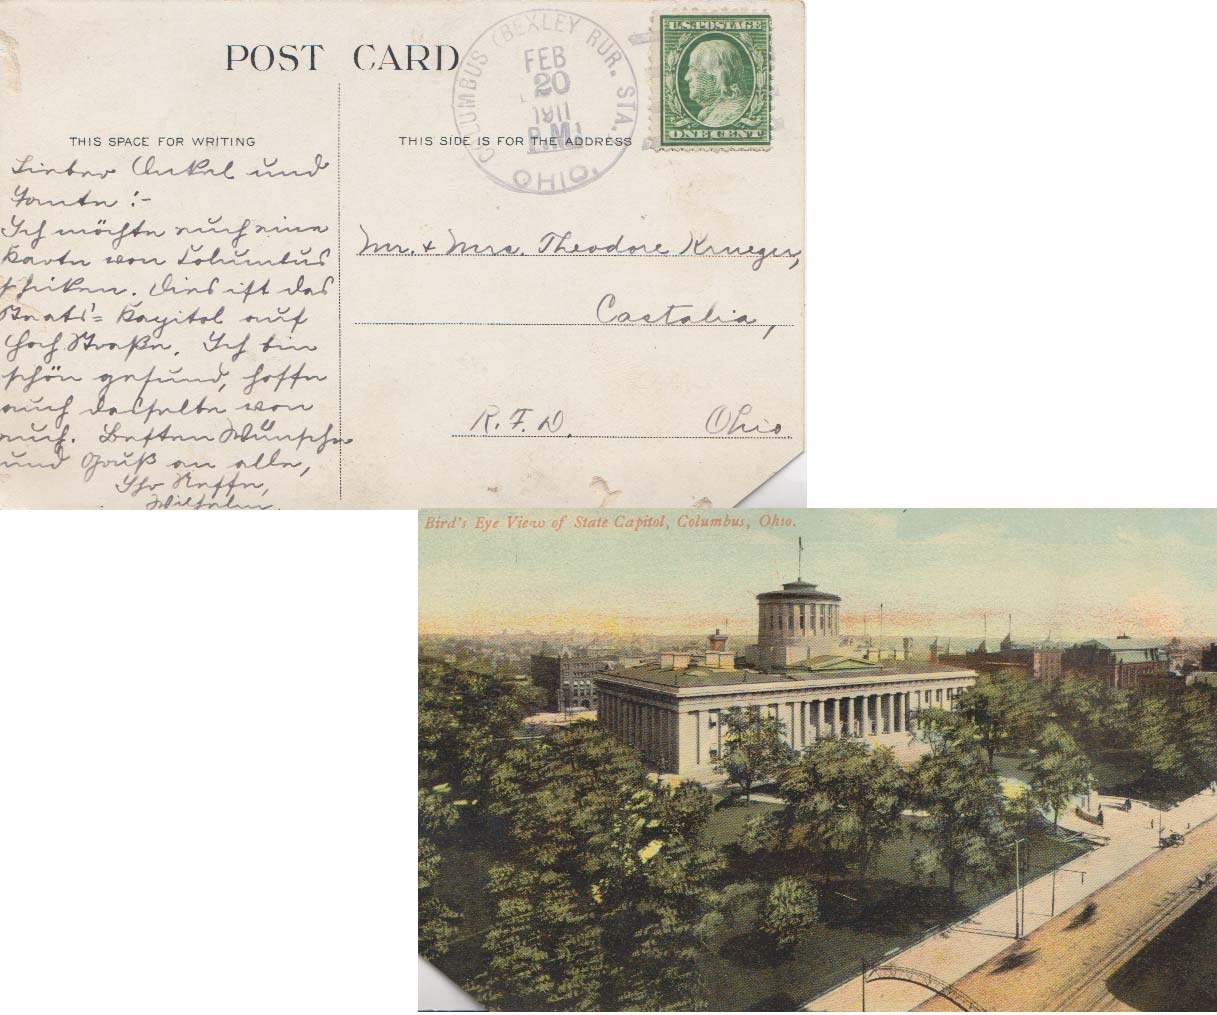 POST CARD
COLUMBUS (BEXLEY RUR. STA.
FEB
20
1911
P.M.
OHIO.
U.S. POSTAGE
ONE CENT
THIS SPACE FOR WRITING
Lieber Onkel und
Tante :-
Ich möchte euch eine
Karte von Columbus
schiken. Dies ist das
Staats'= Kapitol auf
Hoch Straße. Ich bin
schön gesund, hoffe
auch dasselbe von
euch. Besten Wünsche
und Gruß an alle,
Ihr Neffe,
Wilhelm.
THIS SIDE IS FOR THE ADDRESS
Mr. & Mrs. Theodore Krueger,
Castalia,
R. F. D. Ohio.
Bird's Eye View of State Capitol, Columbus, Ohio.